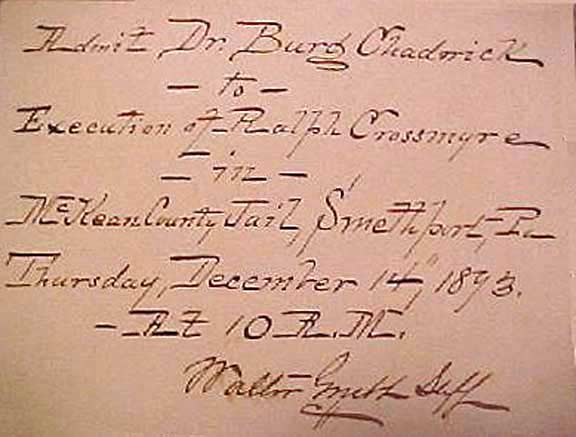 Admit Dr. Burg Chadwick
— to —
Execution of Ralph Crossmyre
— in —
McKean County Jail, Smethport, Pa
Thursday, December 14, 1893.
— At 10 A.M.
Walter Smith Shff